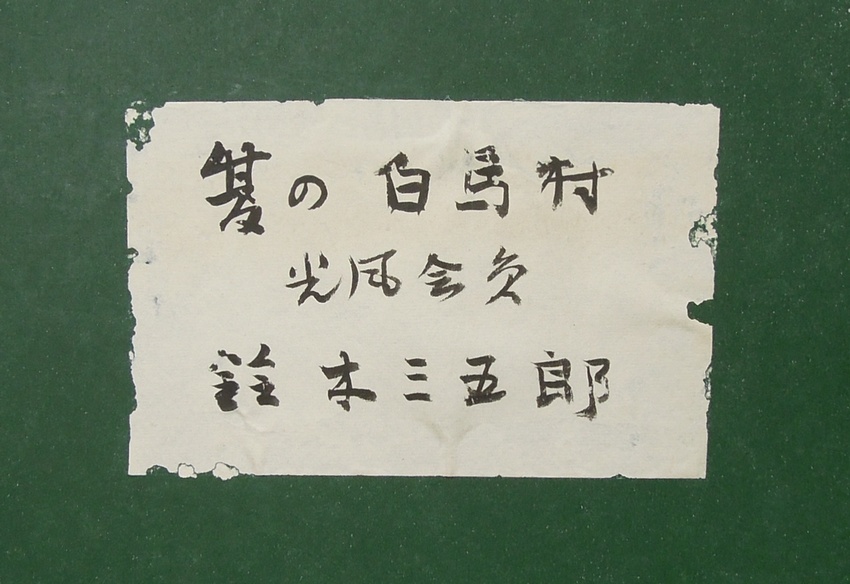 の 白馬村
光風会員
鈴木三五郎